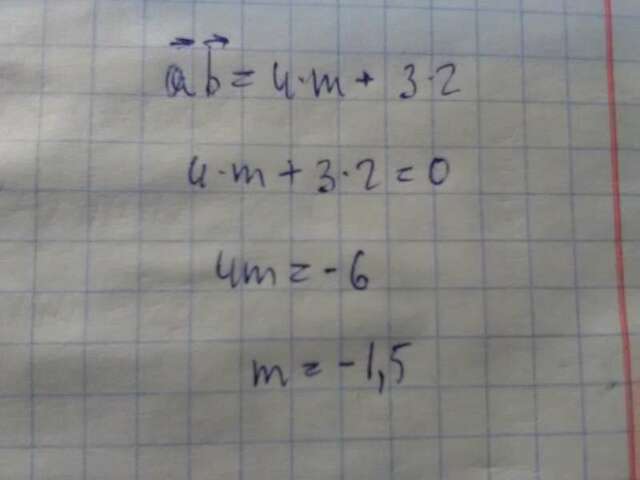 a⃗b⃗ = 4·m + 3·2
4·m + 3·2 = 0
4m = -6
m = -1,5